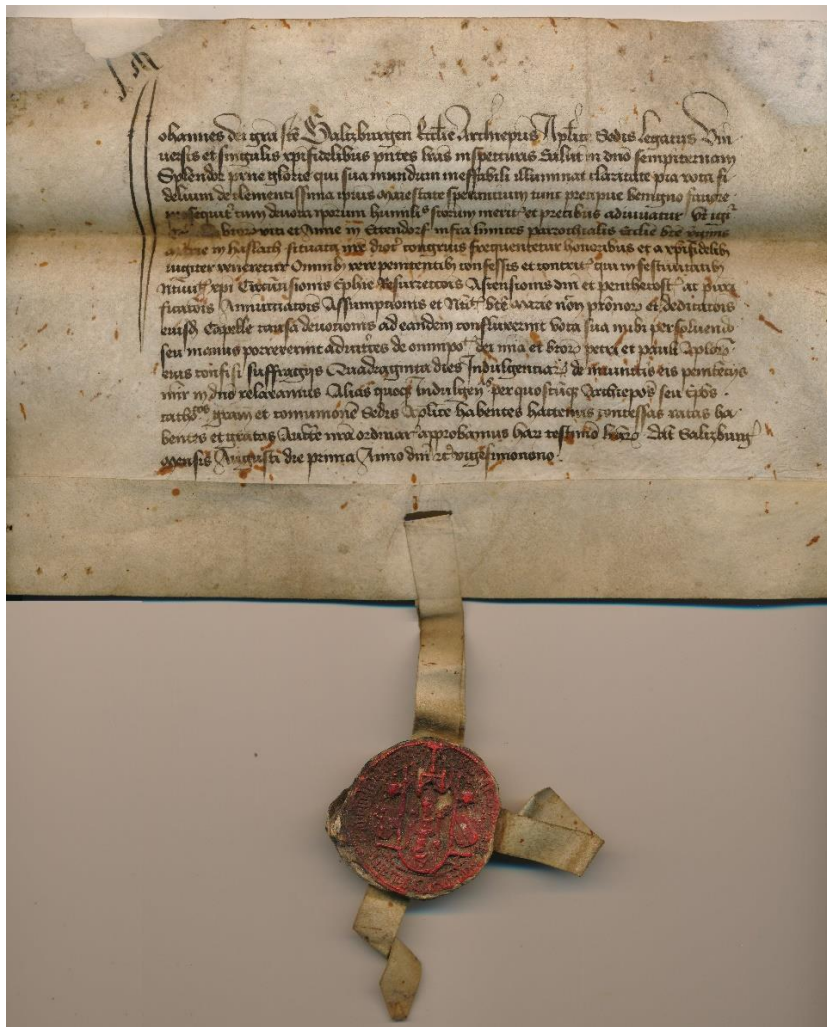 Johannes dei gra scē Saltzburgen Eccl̄ie Archiepūs Aplicē Sedis legatus Vni
uersis et singulis xp̄ifidelibus pn̄tes lrās inspecturis Salut in dnō sempiternam
Splendor pr̄ne glorie qui sua mundum ineffabili illuminat claritate pia vota fi
delium de clementissima ipsius maiestate sperantium tunc precipue benigno fauore
prosequit cum deuota ip̄orum humilis scōrum merit et precibus adiuuatur Vt igr
viti et Anne in Ettendorf infra limites parrochialis Eccl̄ie bt̄e virginis
Marie in Haslach situata nr̄e dioc congruis frequentetur honoribus et a xp̄ifidelib
iugiter veneretur Omnib vere penitentib confessis et contrit qui in festiuitatib
Natiuit xp̄i Circumcisionis Ephie Resurrectois Ascensionis dn̄i et penthecost ac puri
ficatois Annuctiatois Assumptionis et Nat bt̄e Marie nōn prōnor et dedicatois
eiusd Capelle causa deuotionis ad eandem confluxerint vota sua inibi persoluendo
seu manus porrexerint adiutces de omnipot dei mīa et btōr petri et pauli Aplōr
eius confisi suffragijs Quadraginta dies Indulgenciar de iniunctis eis penitēcijs
mīr in dnō relaxamus Alias quoqz Indulgen per quoscūqz Archiepōs seu Epōs
catholicos gram et comunionē Sedis Aplicē habentes hactenus concessas ratas ha
bentes et gratas Auctte nrā ordinar approbamus har testimōio lrār Dat Saltzburg
Mensis Augusti die prima Anno dni rc vigesimonono